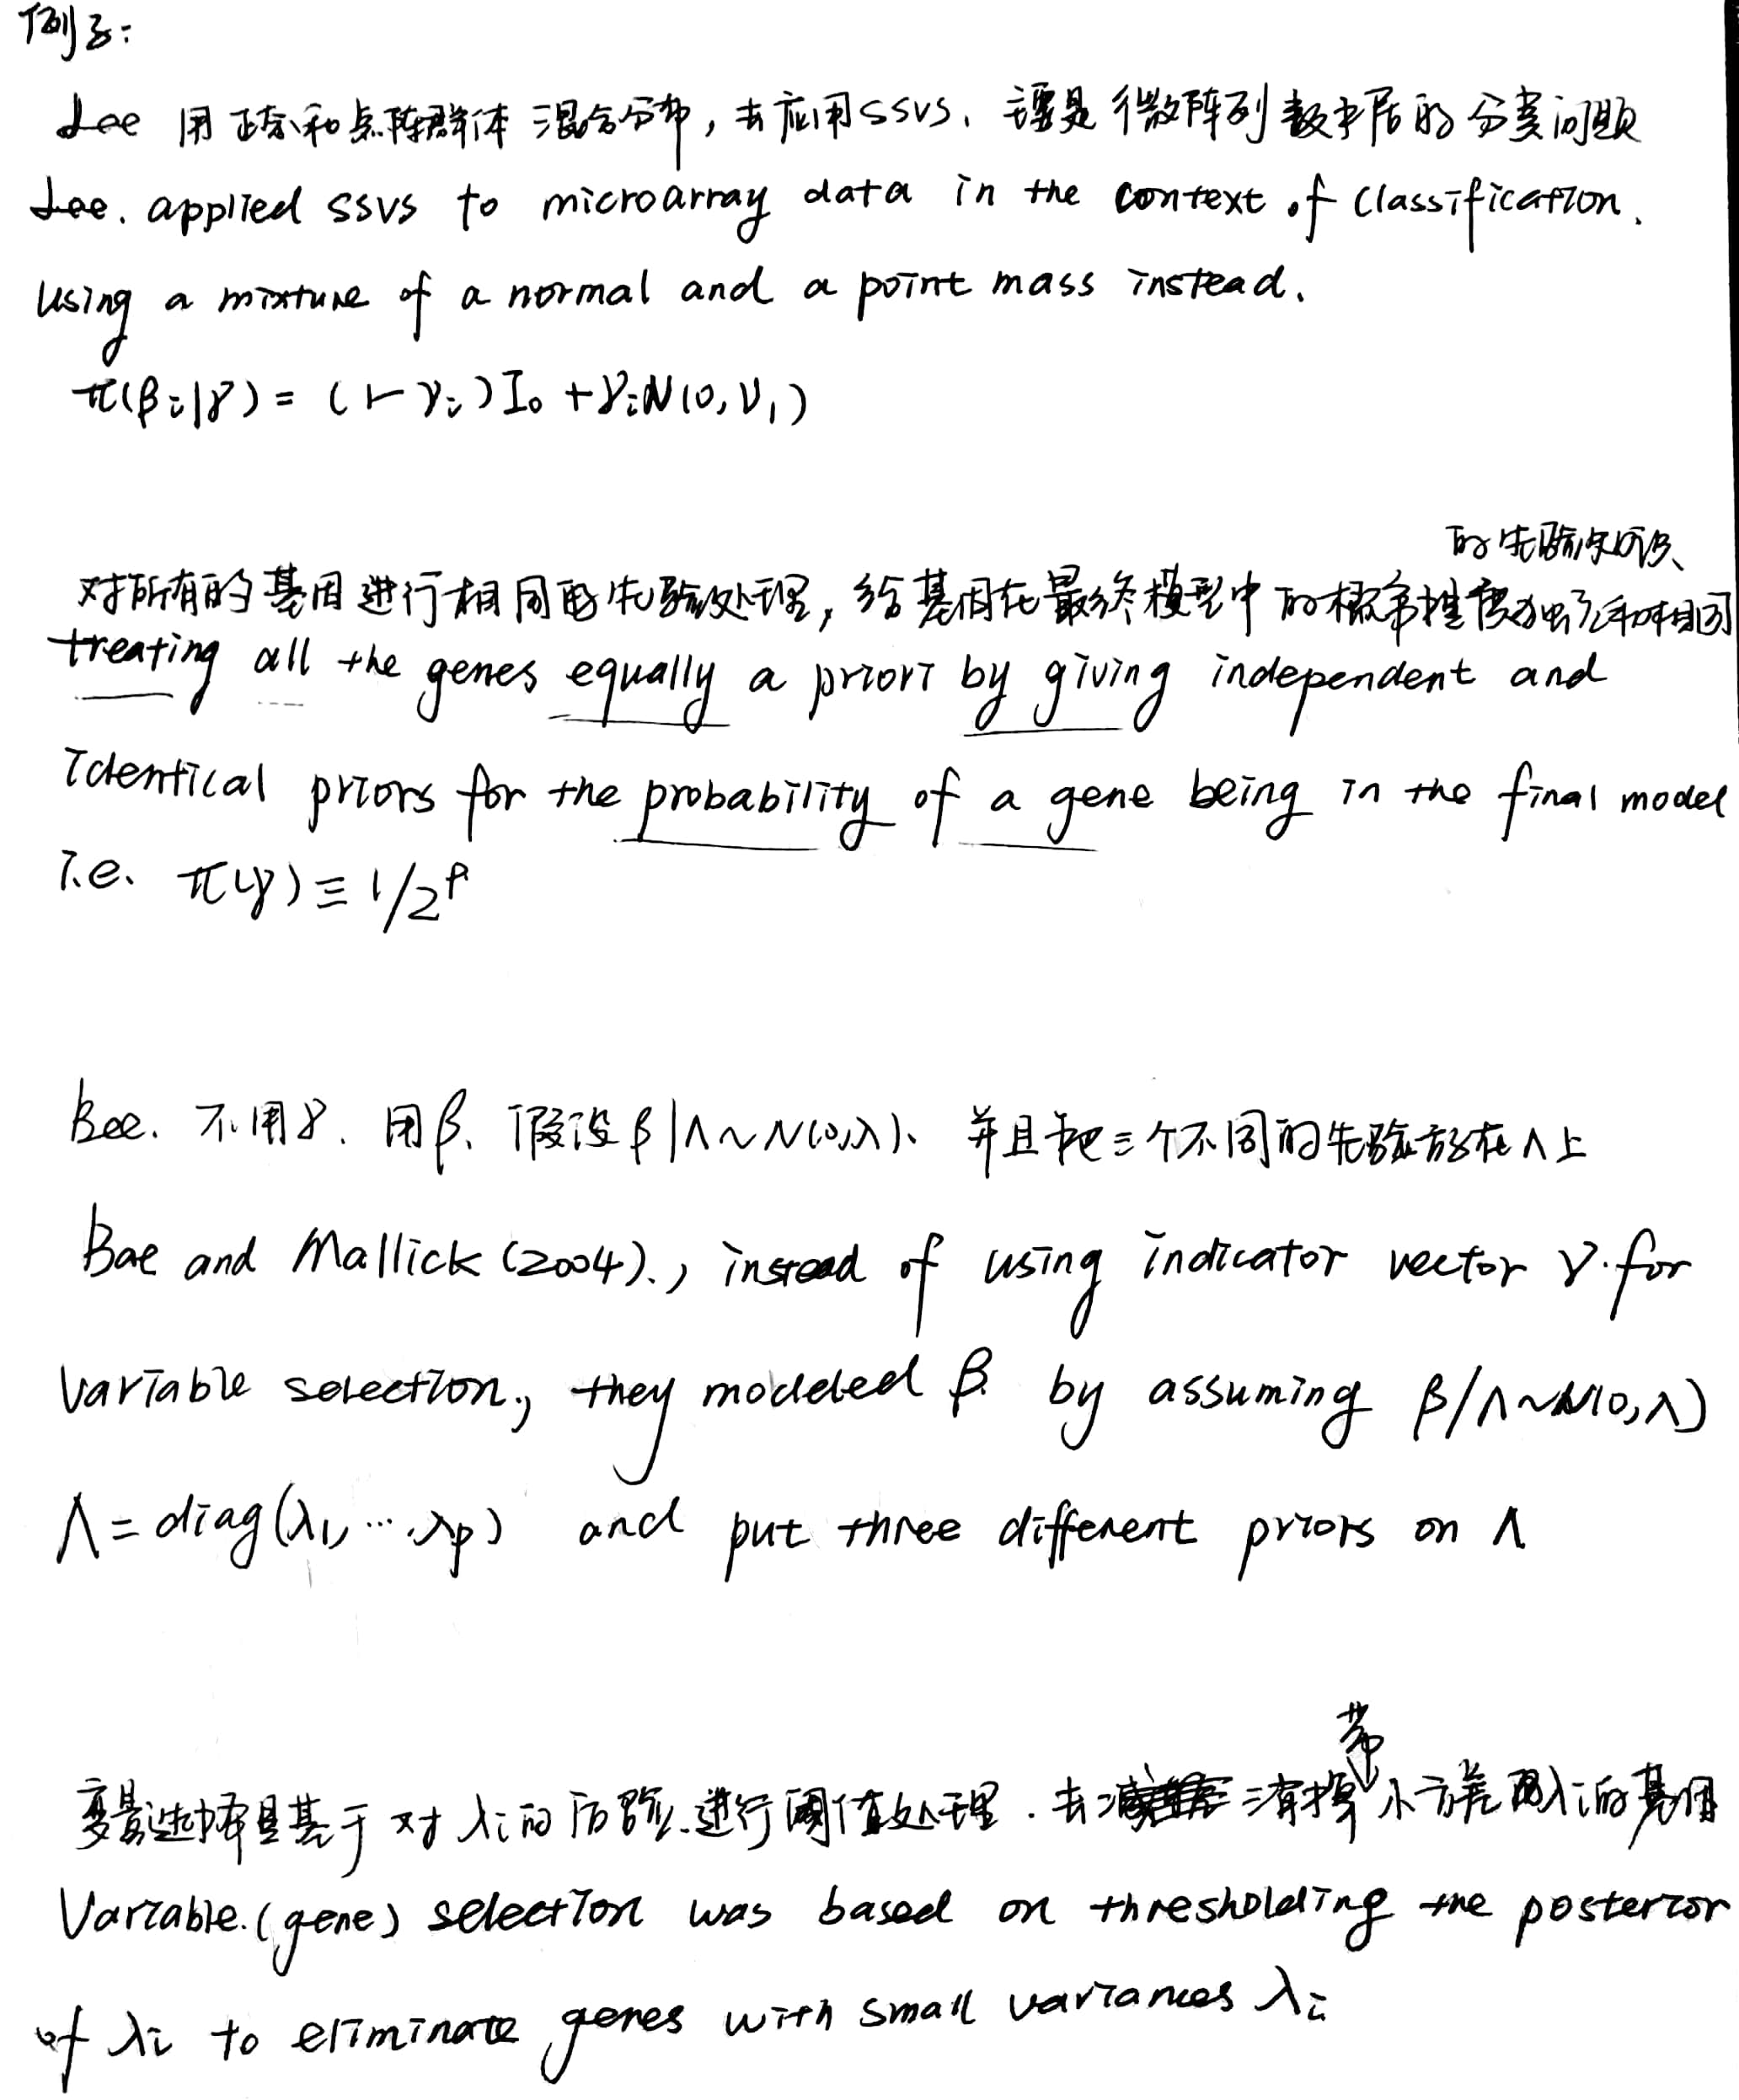 例子:
Lee 用正态和点阵群体混合分布，去应用SSVS、主要是微阵列数据的分类问题
Lee. applied SSVS to microarray data in the context of classification.
using a mixture of a normal and a point mass instead.
π(βi|γ) = (1-γi)I₀ + γiN(0, V₁)
的先验知识
对所有的基因进行相同的先验处理，给基因在最终模型中的概率提供独立和相同
treating all the genes equally a priori by giving independent and
identical priors for the probability of a gene being in the final model
i.e. π(γ) ≡ 1/2^p
Bae. 不用γ. 用β、假设β|Λ~N(0,λ)、并且把三个不同的先验放在Λ上
Bae and Mallick (2004)., instead of using indicator vector γ. for
variable selection, they modeled β. by assuming β/Λ~N(0,Λ)
Λ = diag(λ1, ⋯, λp) and put three different priors on Λ
带
变量选择是基于对λi的后验.进行阈值处理. 去 清掉小方差λi的基因
Variable.(gene) selection was based on thresholding the posterior
of λi to eliminate genes with small variances λi